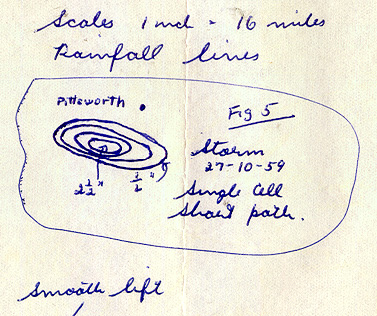 Scales 1 inch = 16 miles
Rainfall lines
Pittsworth
Fig 5
Storm
27-10-59
2½"
½"
Single Cell
Short path.
Smooth left